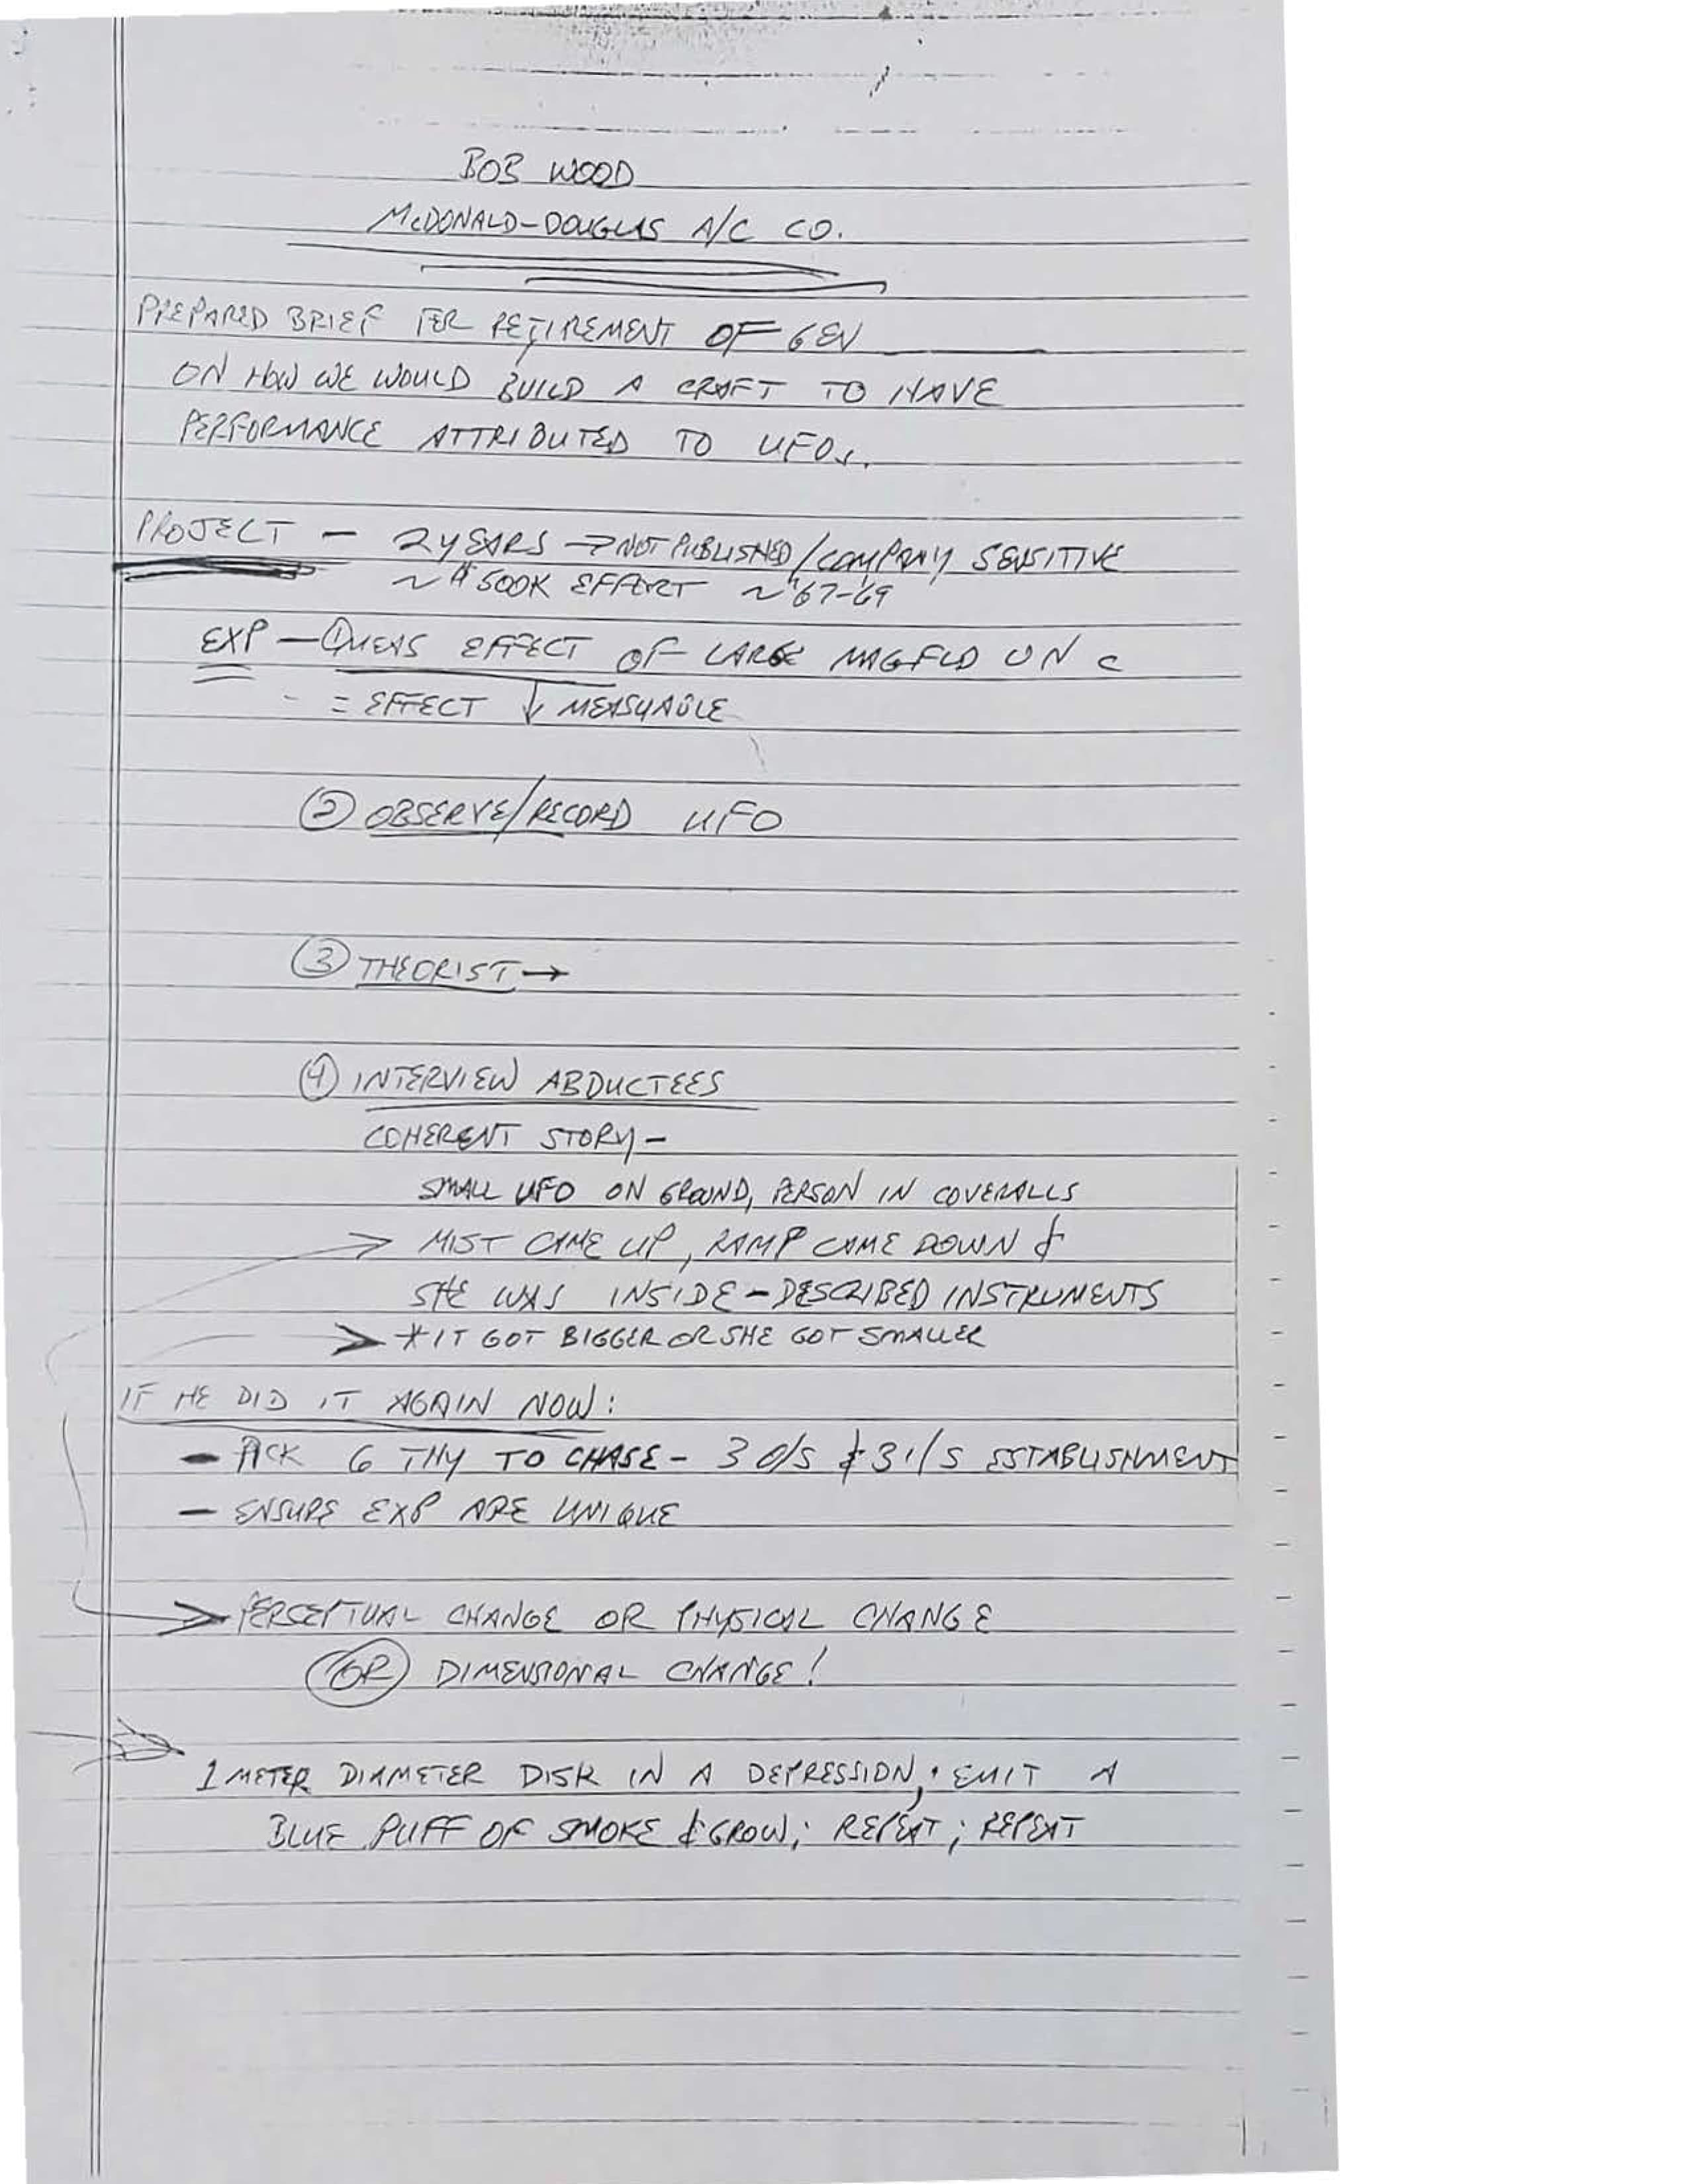 BOB WOOD
McDONALD-DOUGLAS A/C CO.
PREPARED BRIEF PER RETIREMENT OF GEN
ON HOW WE WOULD BUILD A CRAFT TO HAVE
PERFORMANCE ATTRIBUTED TO UFOs.
PROJECT - 2 YEARS → NOT PUBLISHED/COMPANY SENSITIVE
~ $500K EFFORT ~ '67-'69
EXP - ① MEAS EFFECT OF LARGE MAGFLD ON c
= EFFECT ↓ MEASUABLE
② OBSERVE/RECORD UFO
③ THEORIST →
④ INTERVIEW ABDUCTEES
COHERENT STORY -
SMALL UFO ON GROUND, PERSON IN COVERALLS
> MIST CAME UP, RAMP CAME DOWN &
SHE WAS INSIDE - DESCRIBED INSTRUMENTS
> * IT GOT BIGGER OR SHE GOT SMALLER
IF HE DID IT AGAIN NOW:
- PICK 6 THY TO CHASE - 3 O/S & 3 I/S ESTABLISHMENT
- ENSURE EXP ARE UNIQUE
> PERCEPTUAL CHANGE OR PHYSICAL CHANGE
OR DIMENSIONAL CHANGE!
1 METER DIAMETER DISK IN A DEPRESSION; EMIT A
BLUE PUFF OF SMOKE & GROW; REPEAT; REPEAT